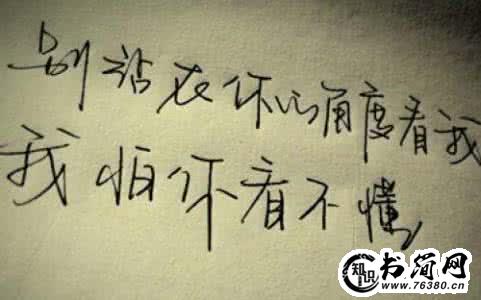 别站在你的角度看我
我怕你看不懂
知识
书简网
www.76380.cn